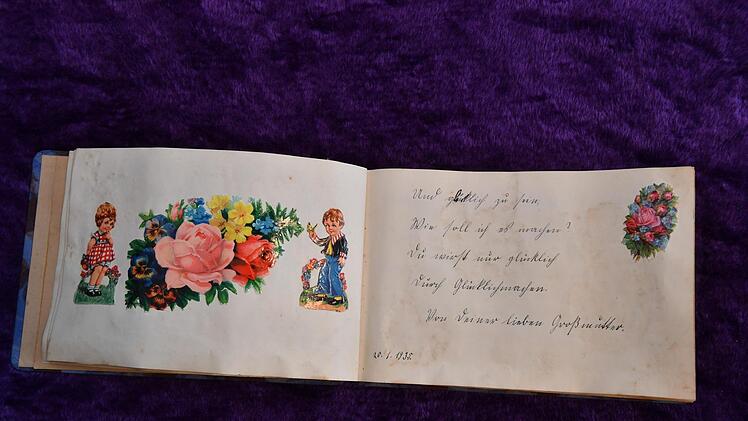 Und glücklich zu sein,
Wie soll ich es machen?
Du wirst nur glücklich
Durch Glücklichmachen.
Von Deiner lieben Großmutter.
20. 1. 1935.